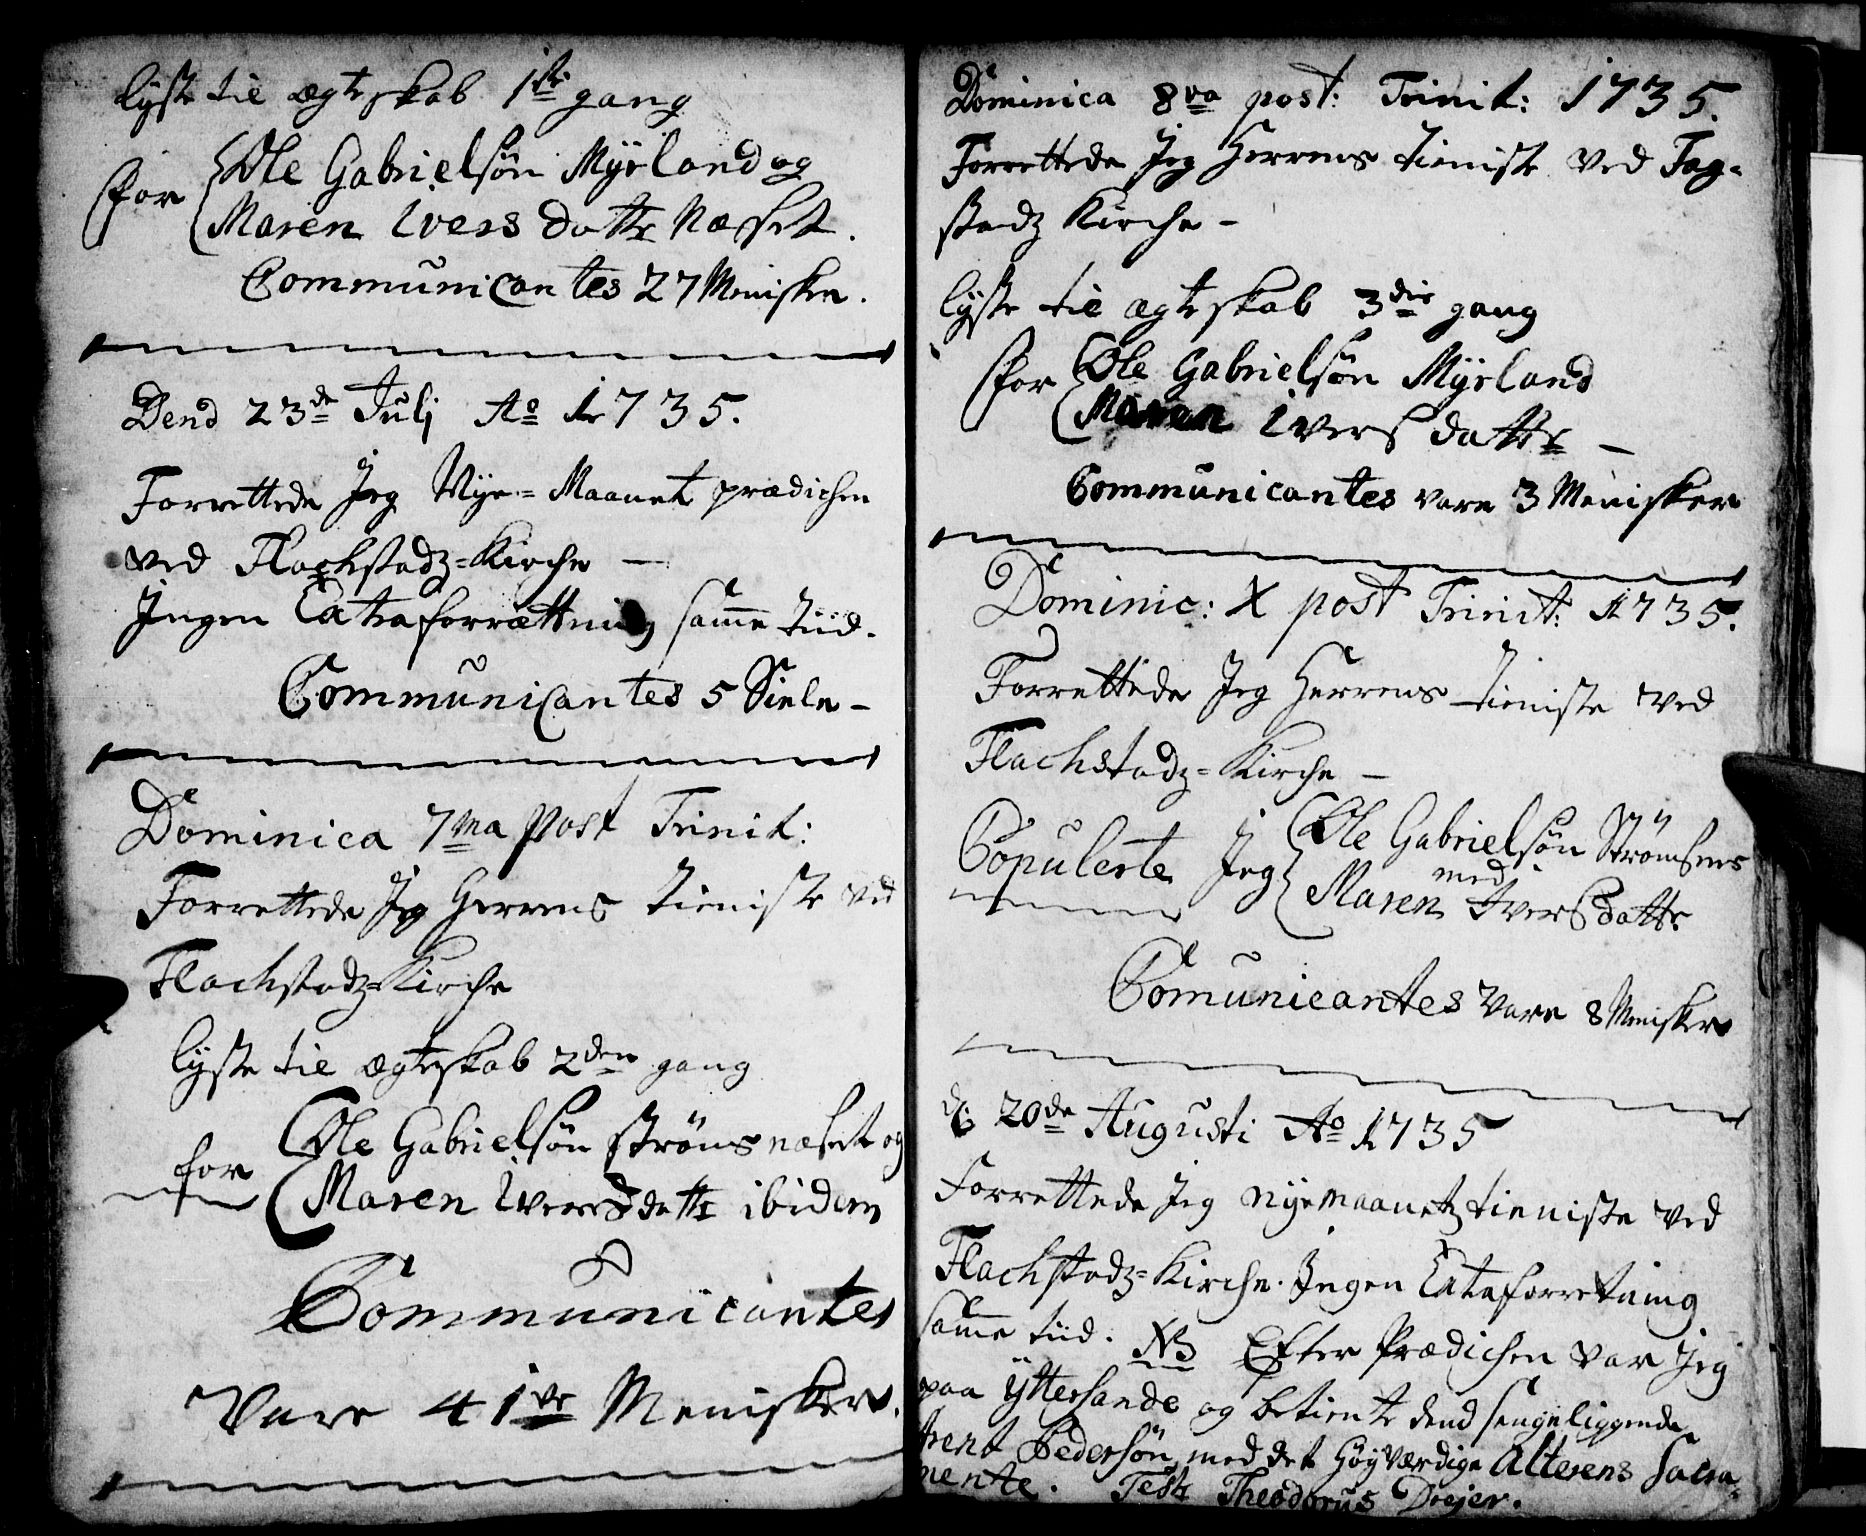 lyste til ægteskab 1ste gang
for { Ole Gabrielsøn Myrland og
Maren Ivers datter Næsset.
Communicantes 27 Menisker.
Dend 23de Julj Ao 1735.
Forrettede Jeg Nye=Maanet prædichen
ved Flachstadz=Kirche —
Ingen Extraforrættning samme tiid.
Communicantes 5 Siele –
Dominica 7ma Post Trinit:
Forrettede Jeg Herrens tieniste ved
Flachstadz=Kirche
lyste til ægteskab 2den gang
for { Ole Gabrielsøn Strømsnæset og
Maren Iversdatter ibidem
Communicantes
Vare 41ve Menisker.
Dominica 8va post: Trinit: 1735.
Forrettede Jeg Herrens tieniste ved Fag-
stadz Kirche –
lyste til ægteskab 3die gang
for { Ole Gabrielsøn Myrland
Maren Ivers datter —
Communicantes vare 3 Menisker
Dominic: X post Trinit: 1735.
Forrettede Jeg Herrens tieniste ved
Flachstadz=Kirche –
Copulerte Jeg { Ole Gabrielsøn Strømsnes
med
Maren Iversdatter
Comunicantes vare 8 Menisker
d: 20de Augusti Ao 1735
Forrettede Jeg nyemaanetz tieniste ved
Flachstadz=Kirche. Ingen Extraforretning
samme tiid. NB Efter Prædichen var Jeg
paa Yttersande og betiente dend sengeliggende
Arent Pedersøn med det Høyværdige Alterens Sacra-
mente. Test Theodorus Drejer.